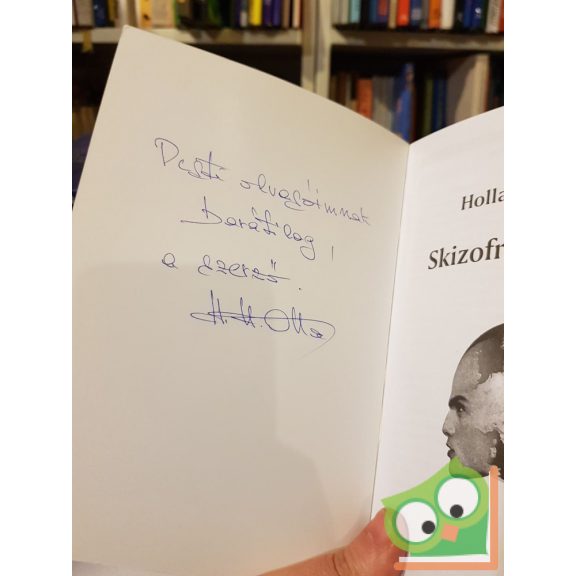 Pesti olvasóimnak
barátilag!
a szerző.
H. H. Otto
Holla
Skizofr